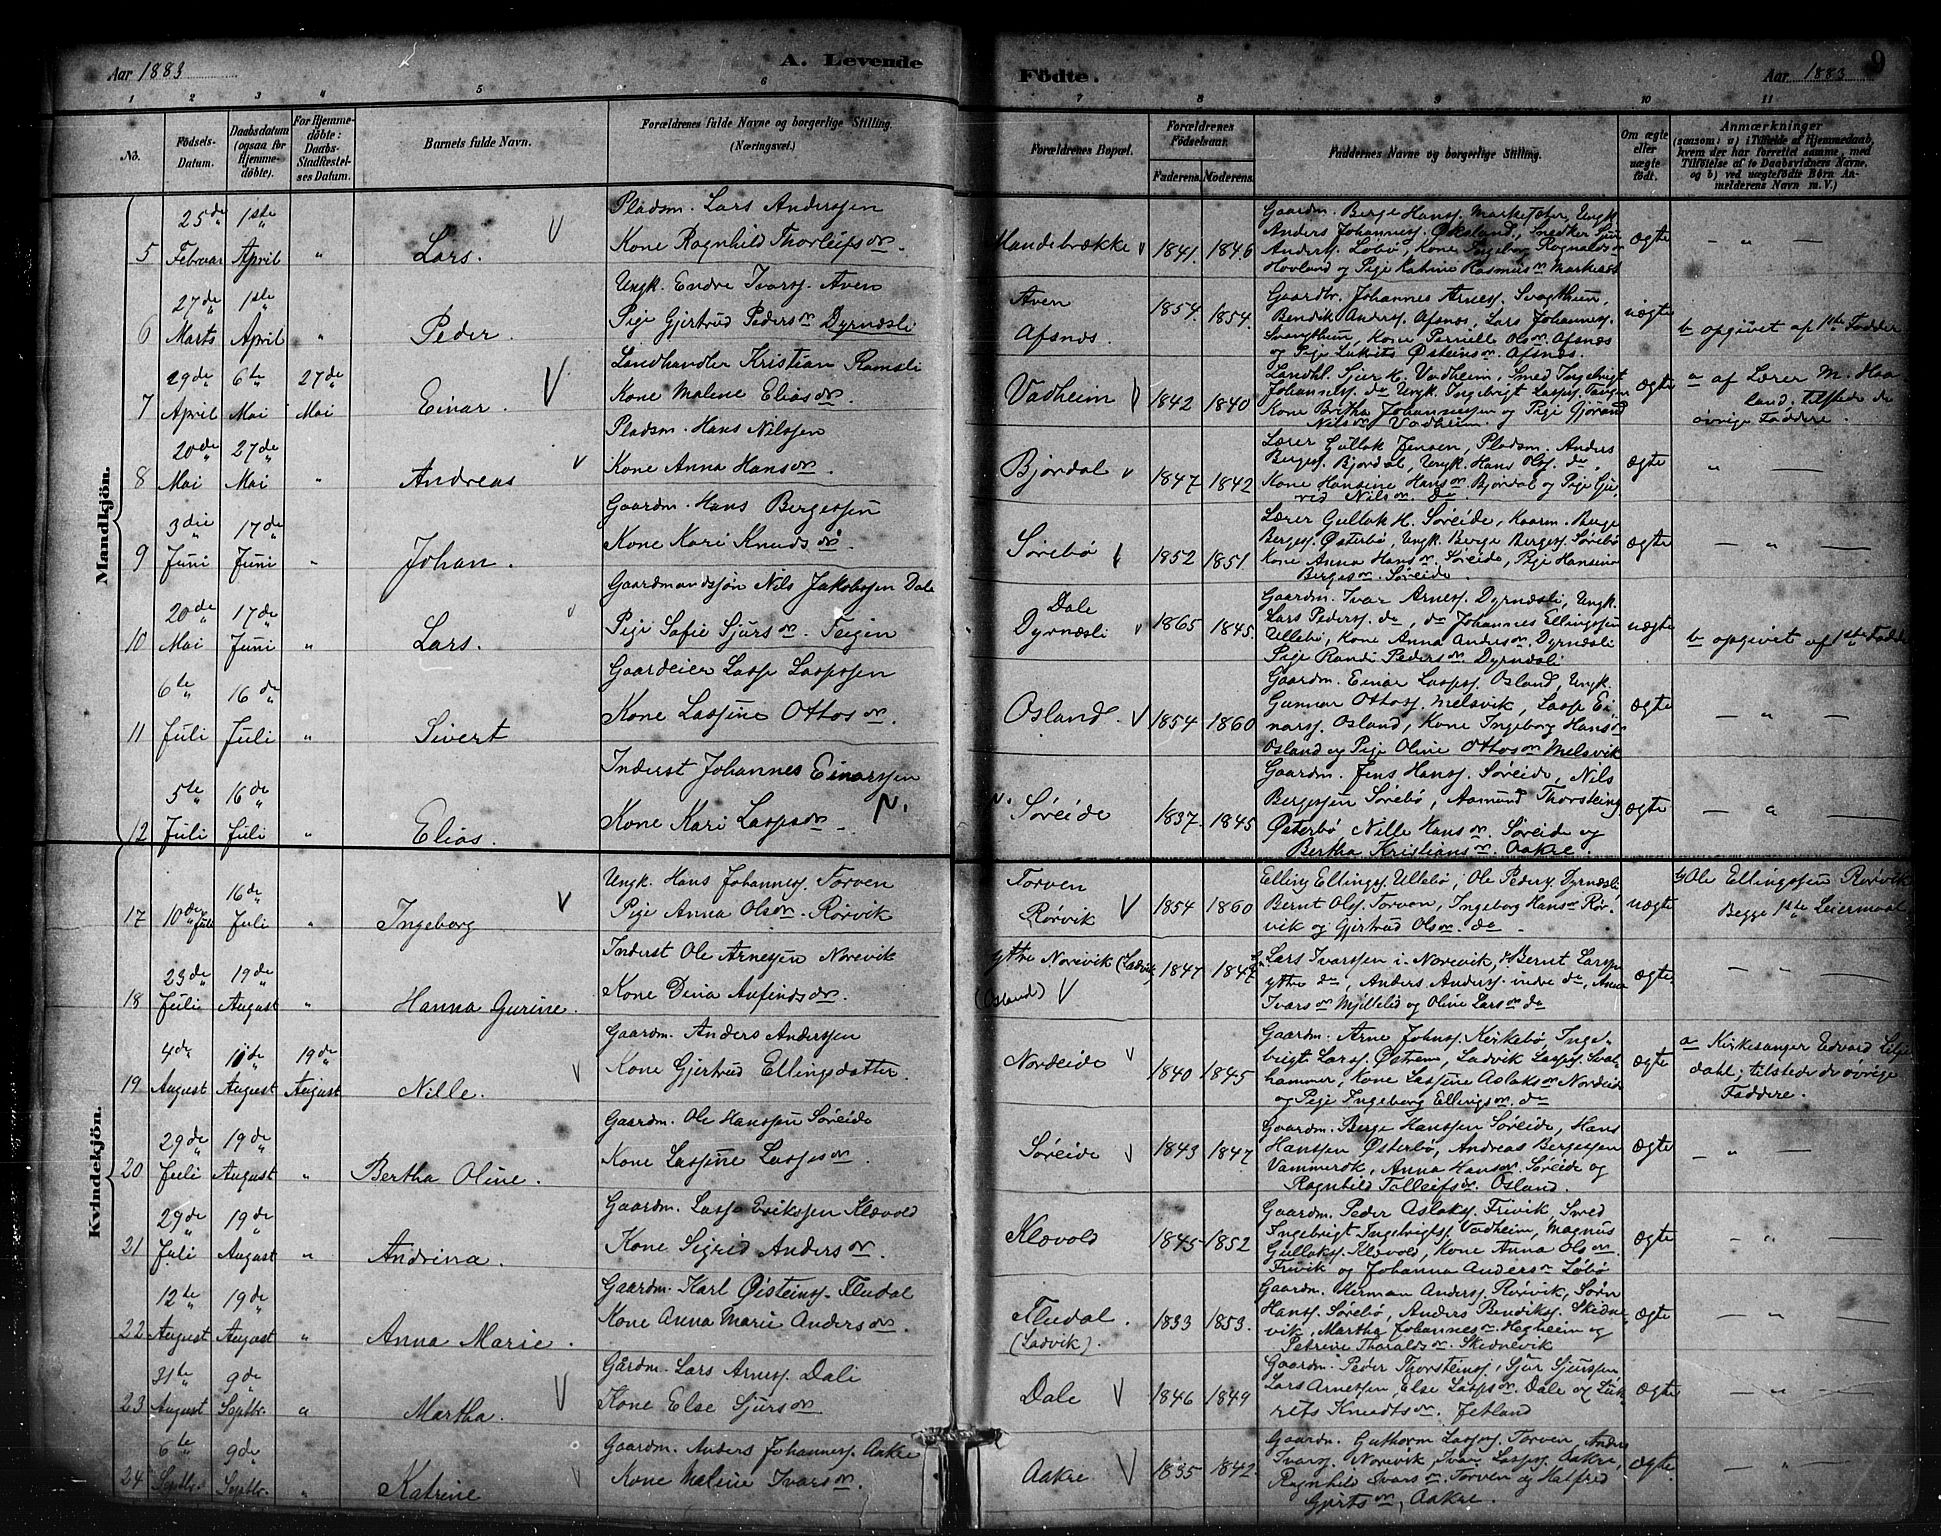 Aar 1883 A. Levende Födte. Aar 1883 9
1 2 3 4 5 6 7 8 9 10 11
No. Födsels-Datum. Daabsdatum (ogsaa for Hjemme-döbte). For Hjemme-döbte: Daabs-Stadfæstel-ses Datum. Barnets fulde Navn. Forældrenes fulde Navne og borgerlige Stilling. (Næringsvei.) Forældrenes Bopæl. Forældrenes Födselsaar. Faderens. Moderens. Faddernes Navne og borgerlige Stilling. Om ægte eller uægte födt. Anmærkninger (saasom: a) i Tilfælde af Hjemmedaab, hvem der har forrettet samme, med Tilföielse af to Daabsvidners Navne, og b) ved uægtefödte Börn An-melderens Navn m. V.)
Mandkjön.
25de 1ste
5 Februar April " Lars.
Pladsm. Lars Anderssen
Kone Ragnhild Thorleifsdr.
1841. 1846
Gaardm. Berge Hanss. Ungk.
Anders Johanness. Øksland, Snedker
Anderss. Løbø, Kone Ingeborg Ragnaldsdr
Hovland og Pige Katrine Rasmusdr
Ægte — " —
27de 1ste
6 Marts April " Peder.
Ungk. Endre Ivarss. Aven
Pige Gjertrud Pedersdr Dyrnæsli
Aven
Afsnæs.
1854. 1854.
Gaardbr. Johannes Arness.
Bendik Anderss. Afsnæs, Lars Johanness.
Kone Pernille Olsdr Afsnæs
og Pige Østeinsdr. Afsnæs.
uægte b opgivet af 1ste Fadder
29de 6te 27de
7 April Mai Mai Einar.
Landhandler Kristian Ramsli
Kone Malene Eliasdr.
Vadheim
1842 1840
Landhl. Sjur K. Vadheim, Smed Ingebrigt
Johanness. do Ungk. Ingebrigt Lasses.
Kone Britha Johannessen og Pige Gjørand
Nilsdr Vadheim.
Ægte a af Lærer M. Haa
land; tilstede de
øvrige Faddere.
20de 27de
8 Mai Mai " Andreas
Pladsm. Hans Nilssen
Kone Anna Hansdr.
Bjordal
1847 1842
Lærer Gullak Jensen, Pladsm. Anders
Bergess. Bjordal, Ungk. Hans Olss. do,
Kone Hansine Hansdr Bjordal og Pige Gu-
rid Nilsdr. do.
Ægte " —
3die 17de
9 Juni Juni " Johan.
Gaardm. Hans Bergessen
Kone Kari Knudsdr.
Sørebø
1852 1851
Lærer Gullak H. Søreide, Kaarm. Berge
Bergess. Østerbø, Ungk. Berge Bergess. Sørebø
Kone Anna Hansdr. Søreide, Pige Hansine
Bergesdr. Søreide.
Ægte — " —
20de 17de
10 Mai Juni " Lars.
Gaardmandssøn Nils Jakobssen Dale
Pige Sofie Sjursdr. Teigen
Dale
Dyrnæsli
1865 1845.
Gaardm. Ivar Arness. Dyrnæsli, Ungk.
Lars Pederss. do, do Johannes Ellingssen
Ullebø, Kone Anna Andersdr. Dyrnæsli
Pige Randi Pedersdr. Dyrnæsli
uægte b opgivet af 1ste Fadder
6te 16de
11 Juli Juli " Sivert
Gaardeier Lasse Lassessen
Kone Lassine Ottosdr.
Osland.
1854 1860
Gaardm. Einar Lasses. Osland, Ungk.
Gunnar Ottoss. Melsvik, Lasse Ei-
narss. Osland, Kone Ingeborg Hansdr
Osland og Pige Oline Ottosdr Melsvik
Ægte — " —
5te 16de
12 Juli Juli " Elias.
Inderst Johannes Einarssen
Kone Kari Lassesdr. N.
N. Søreide
1837. 1845
Gaardm. Jens Hanss. Søreide, Nils
Bergessen Sørebø, Aamund Thorsteins.
Østerbø Nille Hansdr. Søreide og
Bertha Kristiansdr. Aakre.
Ægte — " —
Kvindekjön.
16de
17 10de Juli Juli " Ingeborg
Ungk. Hans Johanness. Torven
Pige Anna Olsdr. Rørvik
Torven
Rørvik
1854 1860
Elling Ellingss. Ullebø, Ole Pederss. Dyrnæsli
Bernt Olss. Torven, Ingeborg Hansdr Rør-
vik og Gjertrud Olsdr. do
uægte b Ole Ellingssen Rørvik
Begge 1ste Leiermaal
23de 19de
18 Juli August " Hanna Gurine.
Inderst Ole Arnessen Norevik
Kone Dina Anfindsdr.
ytre Norevik (Ladvik)
(Osland)
1847 1847
Lars Ivarssen i. Norevik, Bernt Larssen
ytre do, Anders Anderss. indre do, Anna
Ivarsdr Mjeltelid og Oline Larsdr do
Ægte. — " —
4de 11de 19de
19 August August August Nille.
Gaardm. Anders Anderssen
Kone Gjertrud Ellingsdatter.
Nordeide
1840 1845
Gaardm. Arne Johnss. Kirkebø, Inge-
brigt Larss. Østrem, Ladvik Lasses. Sval-
hammer, Kone Lassine Aslaksdr Nordeide
og Pige Ingeborg Ellingsdr. do
Ægte a Kirkesanger Edvard Lilje
dahl; tilstede de øvrige
Faddere.
29de 19de
20 Juli August " Bertha Oline.
Gaardm. Ole Hanssen Søreide
Kone Lassine Lassesdr
Søreide
1843 1847
Gaardm. Berge Hanssen Søreide, Hans
Hanssen Østerbø, Andreas Bergessen
Anna Hansdr. Søreide og
Ragnhild Tolleifsdr. Osland.
Ægte — " —
29de 19de
21 Juli August " Andrina.
Gaardm. Lasse Erikssen Klævold
Kone Sigrid Andersdr.
Klævold
1845 1852
Gaardm. Peder Aslaks. Frivik, Smed
Ingebrigt Ingebrigtss. Vadheim, Magnus
Gullakss. Klævold, Kone Anna Olsdr.
Frivik og Johanna Andersdr Løbø
ægte "
12te 19de
22 August August " Anna Marie.
Gaardm. Karl Østeinss. Fludal
Kone Anna Marie Andersdr.
Fludal.
(Ladvik).
1833 1853.
Gaardm. Herman Anderss. Rørvik, Sørn
Hanss. Sørebø, Anders Bendikss. Skidne
vik, Martha Johannesdr. Høgheim og
Petrine Tharaldsdr. Skidnevik
Ægte "
31te 9de
23 August Septbr. " Martha.
Gårdm. Lars Arness. Dali
Kone Else Sjursdr
Dale
1846 1849
Gaardm. Peder Thorsteinss, Sjur Sjurssen
Lars Arnessen, Else Lassesdr. Dale og Luk-
rets Knudtsdr. Jetland
Ægte — " —
6te 9de
24 Septbr. Septbr. " Katrine
Gaardm. Anders Johanness. Aakre
Kone Malene Ivarsdr.
Aakre.
1835 1842.
Gaardm. Guthorm Lasses. Torven, Anders
Ivarss. Norevik, Ivar Lasses. Aakre,
Ragnhild Ivarsdr. Torven og Halfrid
Gjertsdr, Aakre.
Ægte. — " —